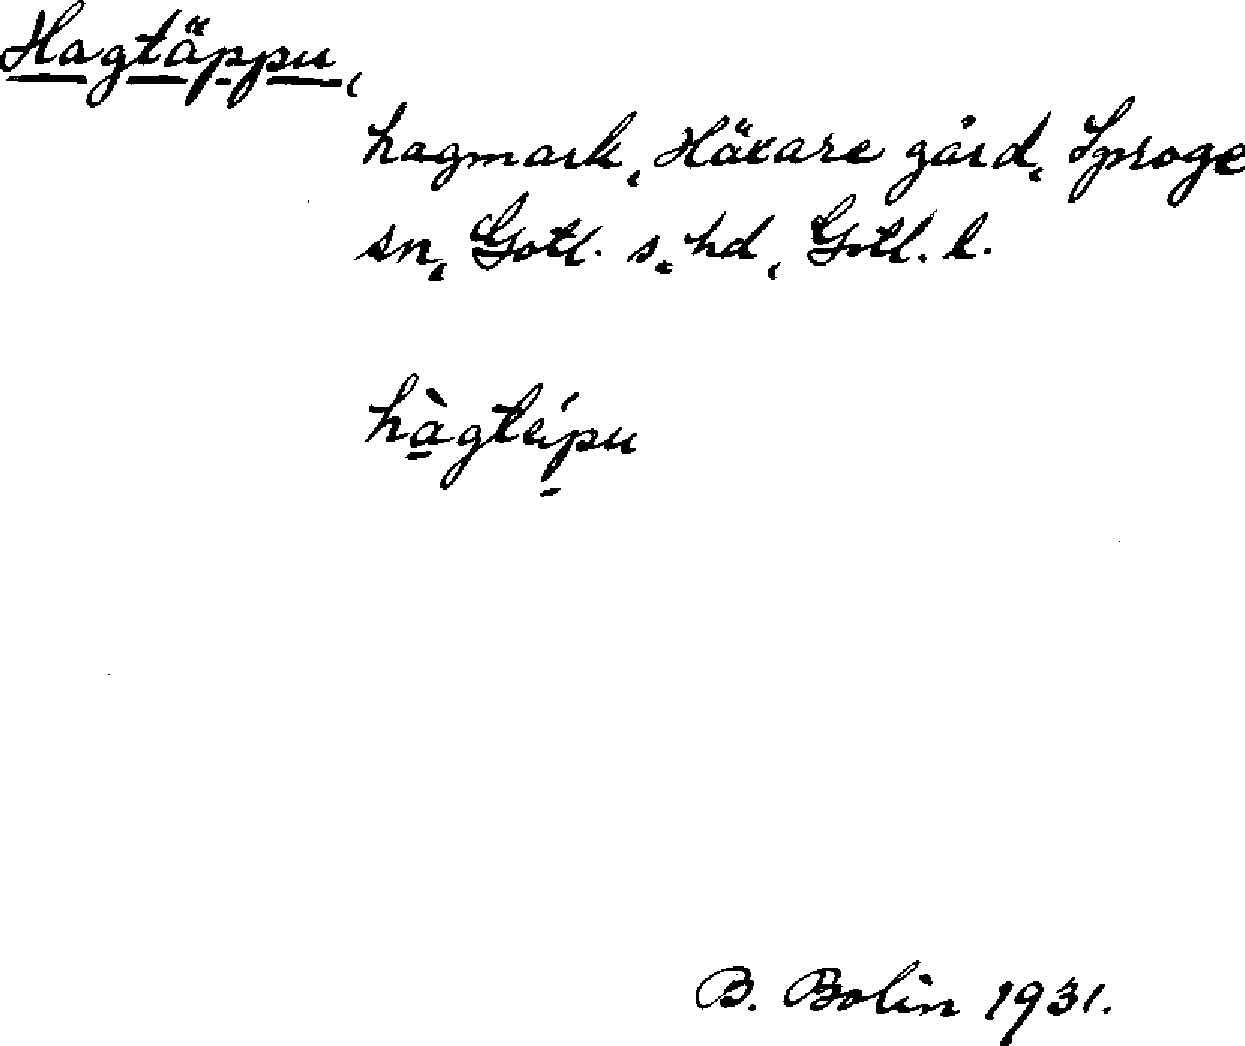 Hagtäppu,
hagmark, Häxare gård, Sproge
sn, Gotl. s. hd, Gotl. l.
hàgtépu
B. Bolin 1931.